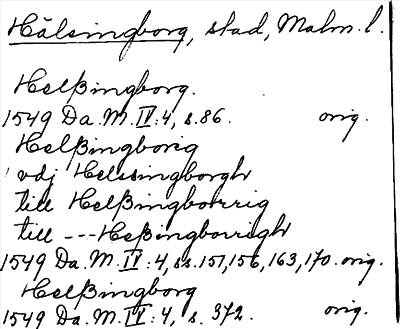 Hälsingborg, stad, Malm. l.
Helßingborg.
1549 Da. M. IV: 4, s. 86. orig.
Helßingborig
vdj Helssingborgh
till Helßingborrig
till --- Heßingborrigh
1549 Da. M. IV: 4, ss. 151, 156, 163, 170. orig.
Helßingborg
1549 Da. M. IV: 4, s. 372. orig.